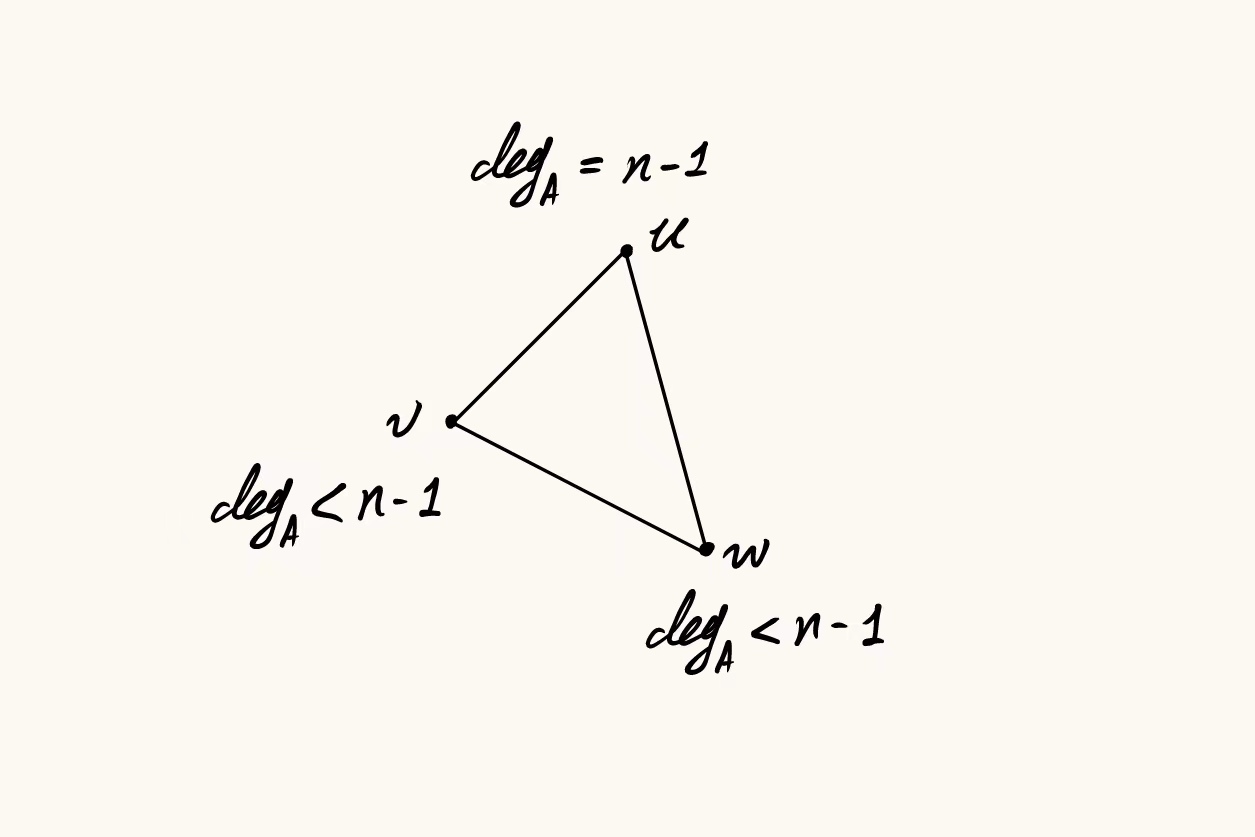 deg_A = n-1
u
v
deg_A < n-1
w
deg_A < n-1